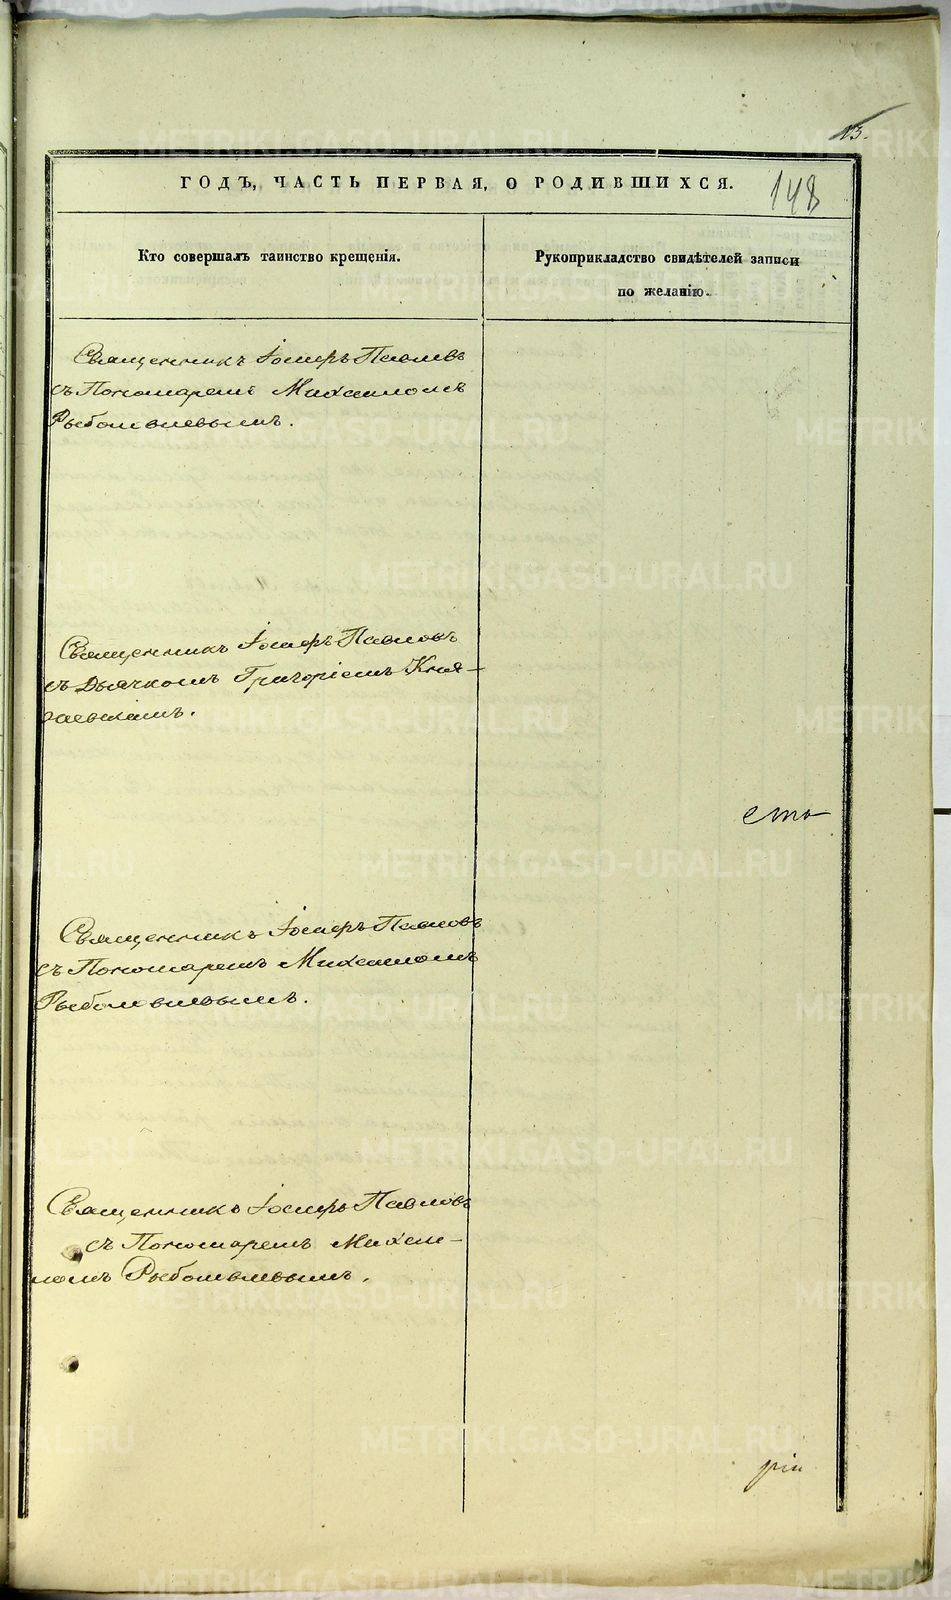 13.
ГОДЪ, ЧАСТЬ ПЕРВАЯ, О РОДИВШИХСЯ.
148
Кто совершалъ таинство крещенія.
Рукоприкладство свидѣтелей записи
по желанію.
Священникъ Іосифъ Павловъ
съ Пономаремъ Михаиломъ
Рыболовлевымъ.
Священникъ Іосифъ Павловъ
съ Дьячкомъ Григоріемъ Кня-
зевскимъ.
ста
Священникъ Іосифъ Павловъ
съ Пономаремъ Михаиломъ
Рыболовлевымъ.
Священникъ Іосифъ Павловъ
съ Пономаремъ Михаи-
ломъ Рыболовлевымъ.
ріи
METRIKI.GASO-URAL.RU